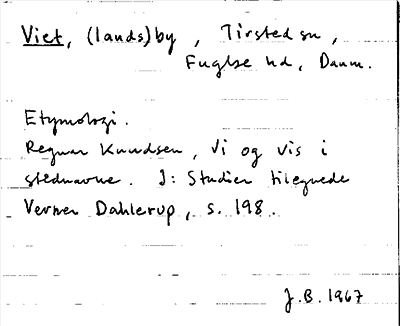 Viet, (lands)by, Tirsted sn,
Fuglse hd, Danm.
Etymologi.
Regnar Knudsen, Vi og Vis i
stednavne. I: Studier tilegnede
Verner Dahlerup, s. 198.
J.B. 1967